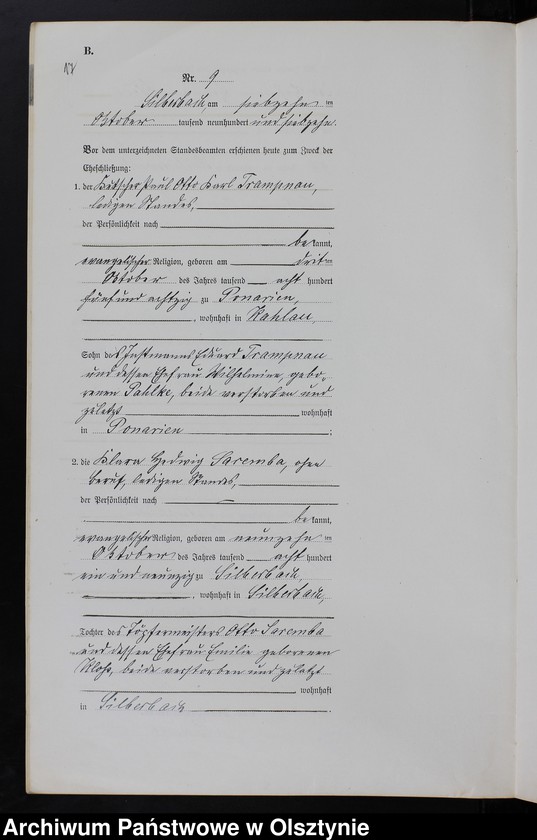 B.
Nr. 9
Silberbach, am siebzehn ten
Oktober tausend neunhundert und siebzehn.
Vor dem unterzeichneten Standesbeamten erschienen heute zum Zweck der
Eheschließung:
1. der Kutscher Paul Otto Karl Trampnau,
ledigen Standes,
der Persönlichkeit nach
be kannt,
evangelischer Religion, geboren am drit ten
Oktober des Jahres tausend acht hundert
fünf und achtzig zu Ponarien,
, wohnhaft in Kahlau,
Sohn des Instmanns Eduard Trampnau
und dessen Ehefrau Wilhelmine, gebo-
renen Pahlke, beide verstorben und
zuletzt wohnhaft
in Ponarien ;
2. die Klara Hedwig Saremba, ohne
Beruf, ledigen Standes,
der Persönlichkeit nach
be kannt,
evangelischer Religion, geboren am neunzehn ten
Oktober des Jahres tausend acht hundert
ein und neunzig zu Silberbach,
, wohnhaft in Silberbach,
Tochter des Töpfermeisters Otto Saremba
und dessen Ehefrau Emilie geborenen
beide verstorben und zuletzt
wohnhaft
in Silberbach .
Archiwum Państwowe w Olsztynie